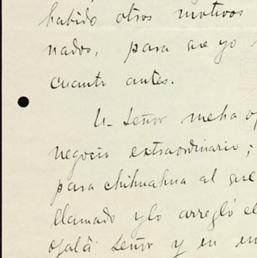 habido otros motivos
nados, para que yo
cuanto antes.
U- Señor me ha
negocio extraordinario;
para chihuahua al que
llamado y lo arregló el
ojalá Señor y en